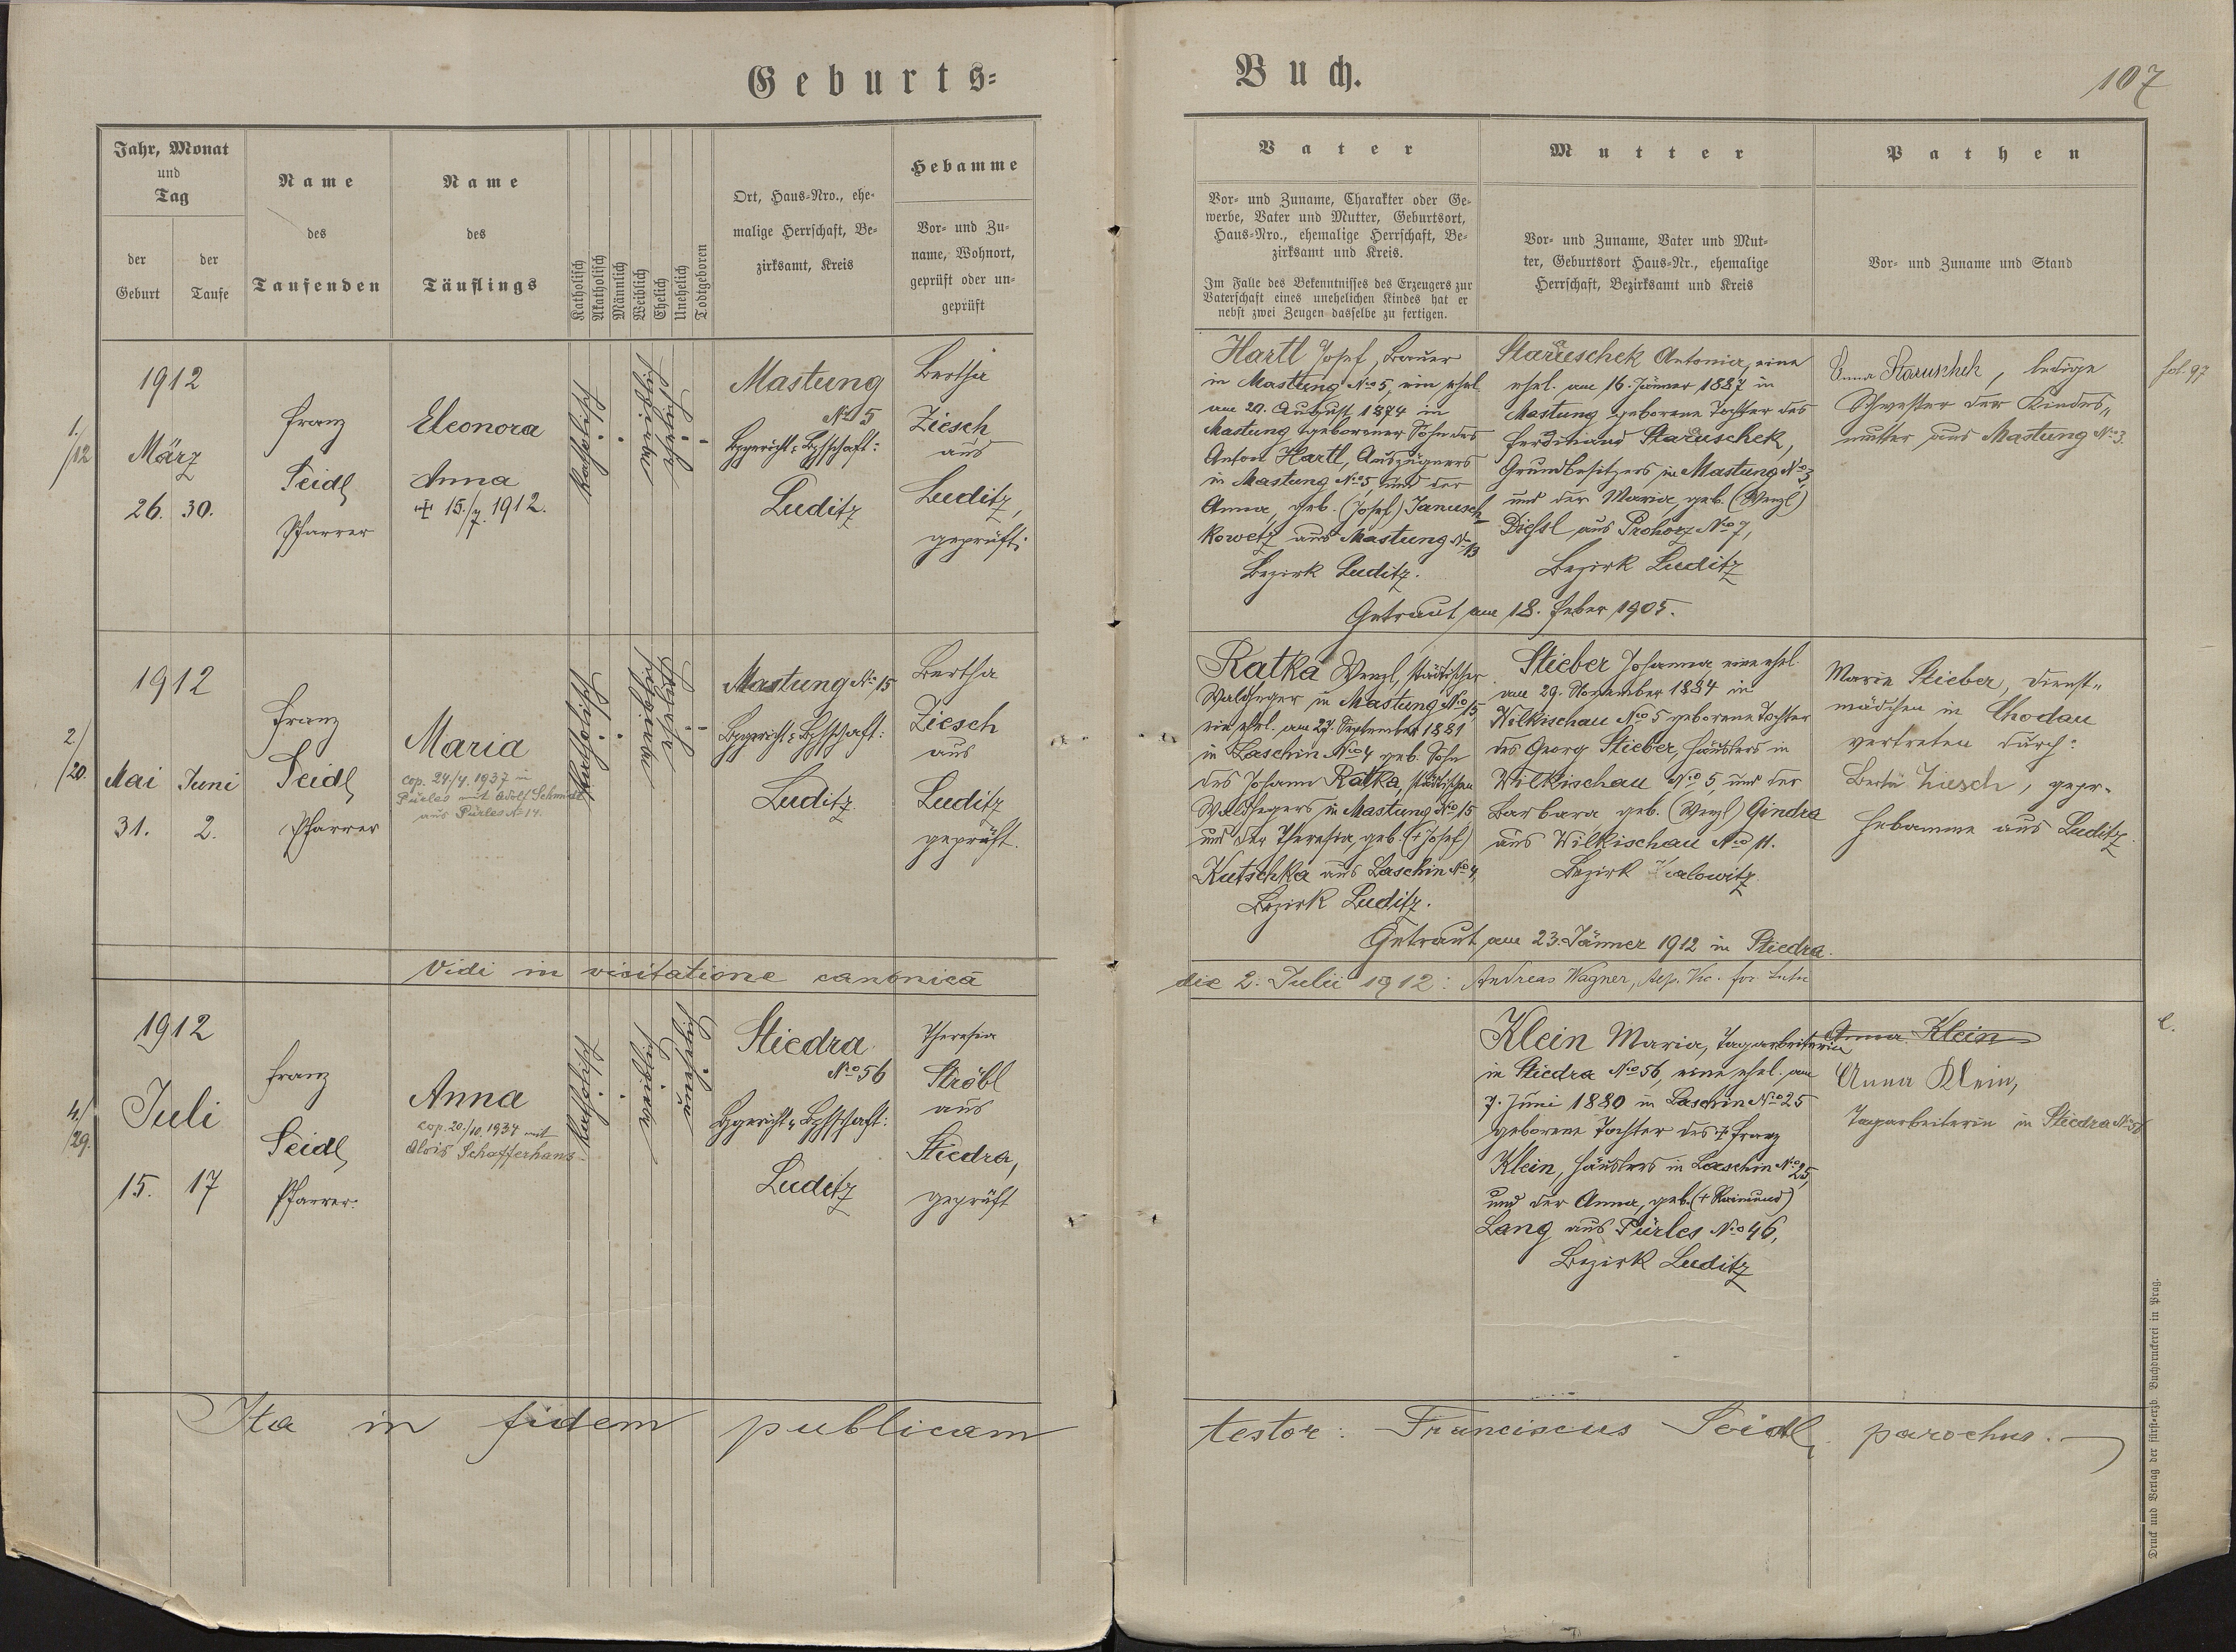 Geburts=
Buch.
107
Jahr, Monat
und
Tag
der
Geburt
der
Taufe
Name
des
Taufenden
Name
des
Täuflings
Katholisch
Akatholisch
Männlich
Weiblich
Ehelich
Unehelich
Todtgeboren
Ort, Haus=Nro., ehe=
malige Herrschaft, Be=
zirksamt, Kreis
Hebamme
Vor= und Zu=
name, Wohnort,
geprüft oder un=
geprüft
Vater
Vor= und Zuname, Charakter oder Ge=
werbe, Vater und Mutter, Geburtsort,
Haus=Nro., ehemalige Herrschaft, Be=
zirksamt und Kreis.
Im Falle des Bekenntnisses des Erzeugers zur
Vaterschaft eines unehelichen Kindes hat er
nebst zwei Zeugen dasselbe zu fertigen.
Mutter
Vor= und Zuname, Vater und Mut=
ter, Geburtsort Haus=Nr., ehemalige
Herrschaft, Bezirksamt und Kreis
Pathen
Vor= und Zuname und Stand
1./12
1912
März
26. 30.
Franz
Seidl
Pfarrer
Eleonora
Anna
+ 15./7. 1912.
Katholisch
weiblich
ehelich
Mastung
No 5
Bzgericht & Bzhschaft:
Luditz
Bertha
Ziesch
aus
Luditz,
geprüft.
Hartl Josef, Bauer
in Mastung No 5, ein ehel.
am 20. August 1874 in
Mastung geborener Sohn des
Anton Hartl, Auszüglers
in Mastung No 5 und der
Anna, geb. (Josef) Janusch=
kowetz aus Mastung No 13
Bezirk Luditz.
Staruschek Antonia, eine
ehel. am 16. Jänner 1887 in
Mastung geborene Tochter des
Ferdinand Staruschek,
Grundbesitzers in Mastung No 3,
und der Maria, geb. (Wenzl)
Diessl aus Prohorz No 7,
Bezirk Luditz
Anna Staruschek, ledige
Schwester der Kindes„
mutter, aus Mastung No 3.
fol. 97
Getraut am 18. Feber 1905.
2/20.
1912
Mai Juni
31. 2.
Franz
Seidl
Pfarrer
Maria
cop. 24./4. 1937 in
Pürles mit Adolf Schmidt
aus Pürles No 14.
Katholisch
weiblich
ehelich
Mastung No 15
Bzgericht & Bzhschaft:
Luditz
Bertha
Ziesch
aus
Luditz
geprüft.
Ratka Wenzl, städtischer
Waldheger in Mastung No 15,
ein ehel. am 27. September 1881
in Laschin No 4 geb. Sohn
des Johann Ratka, städtischen
Waldhegers in Mastung No 15
und der Theresia, geb. (+ Josef)
Kutschka aus Laschin No 4,
Bezirk Luditz.
Stieber Johanna eine ehel.
am 29. November 1884 in
Wilkischau No 5 geborene Tochter
des Georg Stieber, Häuslers in
Wilkischau No 5, und der
Barbara geb. (Wenzl) Gindra
aus Wilkischau No 11.
Bezirk
Marie Stieber, Dienst„
mädchen in Chodau
vertreten durch:
Berta Ziesch, gepr.
Hebamme aus Luditz.
Getraut am 23. Jänner 1912 in Stiedra.
Vidi in visitatione canonica
die 2. Julii 1912: Andreas Wagner,
4./29.
1912
Juli
15. 17
Franz
Seidl
Pfarrer.
Anna
cop. 20./10. 1934 mit
Alois Schafferhans
Katholisch
weiblich
unehelich
Stiedra
No 56
Bzgericht & Bzhschaft:
Luditz
Theresia
Ströbl
aus
Stiedra,
geprüft
Klein Maria, Tagarbeiterin
in Stiedra No 56, eine ehel. am
7. Juni 1880 in Laschin No 25
geborene Tochter des + Franz
Klein, Häuslers in Laschin No 25,
und der Anna, geb. (+ Raimund)
Lang aus Pürles No 46,
Bezirk Luditz
Anna Klein
Anna Klein,
Tagarbeiterin in Stiedra No 56
Ita in fidem publicam
testor: Franciscus Seidl, parochus.
Druck und Verlag der fürst=erzb. Buchdruckerei in Prag.